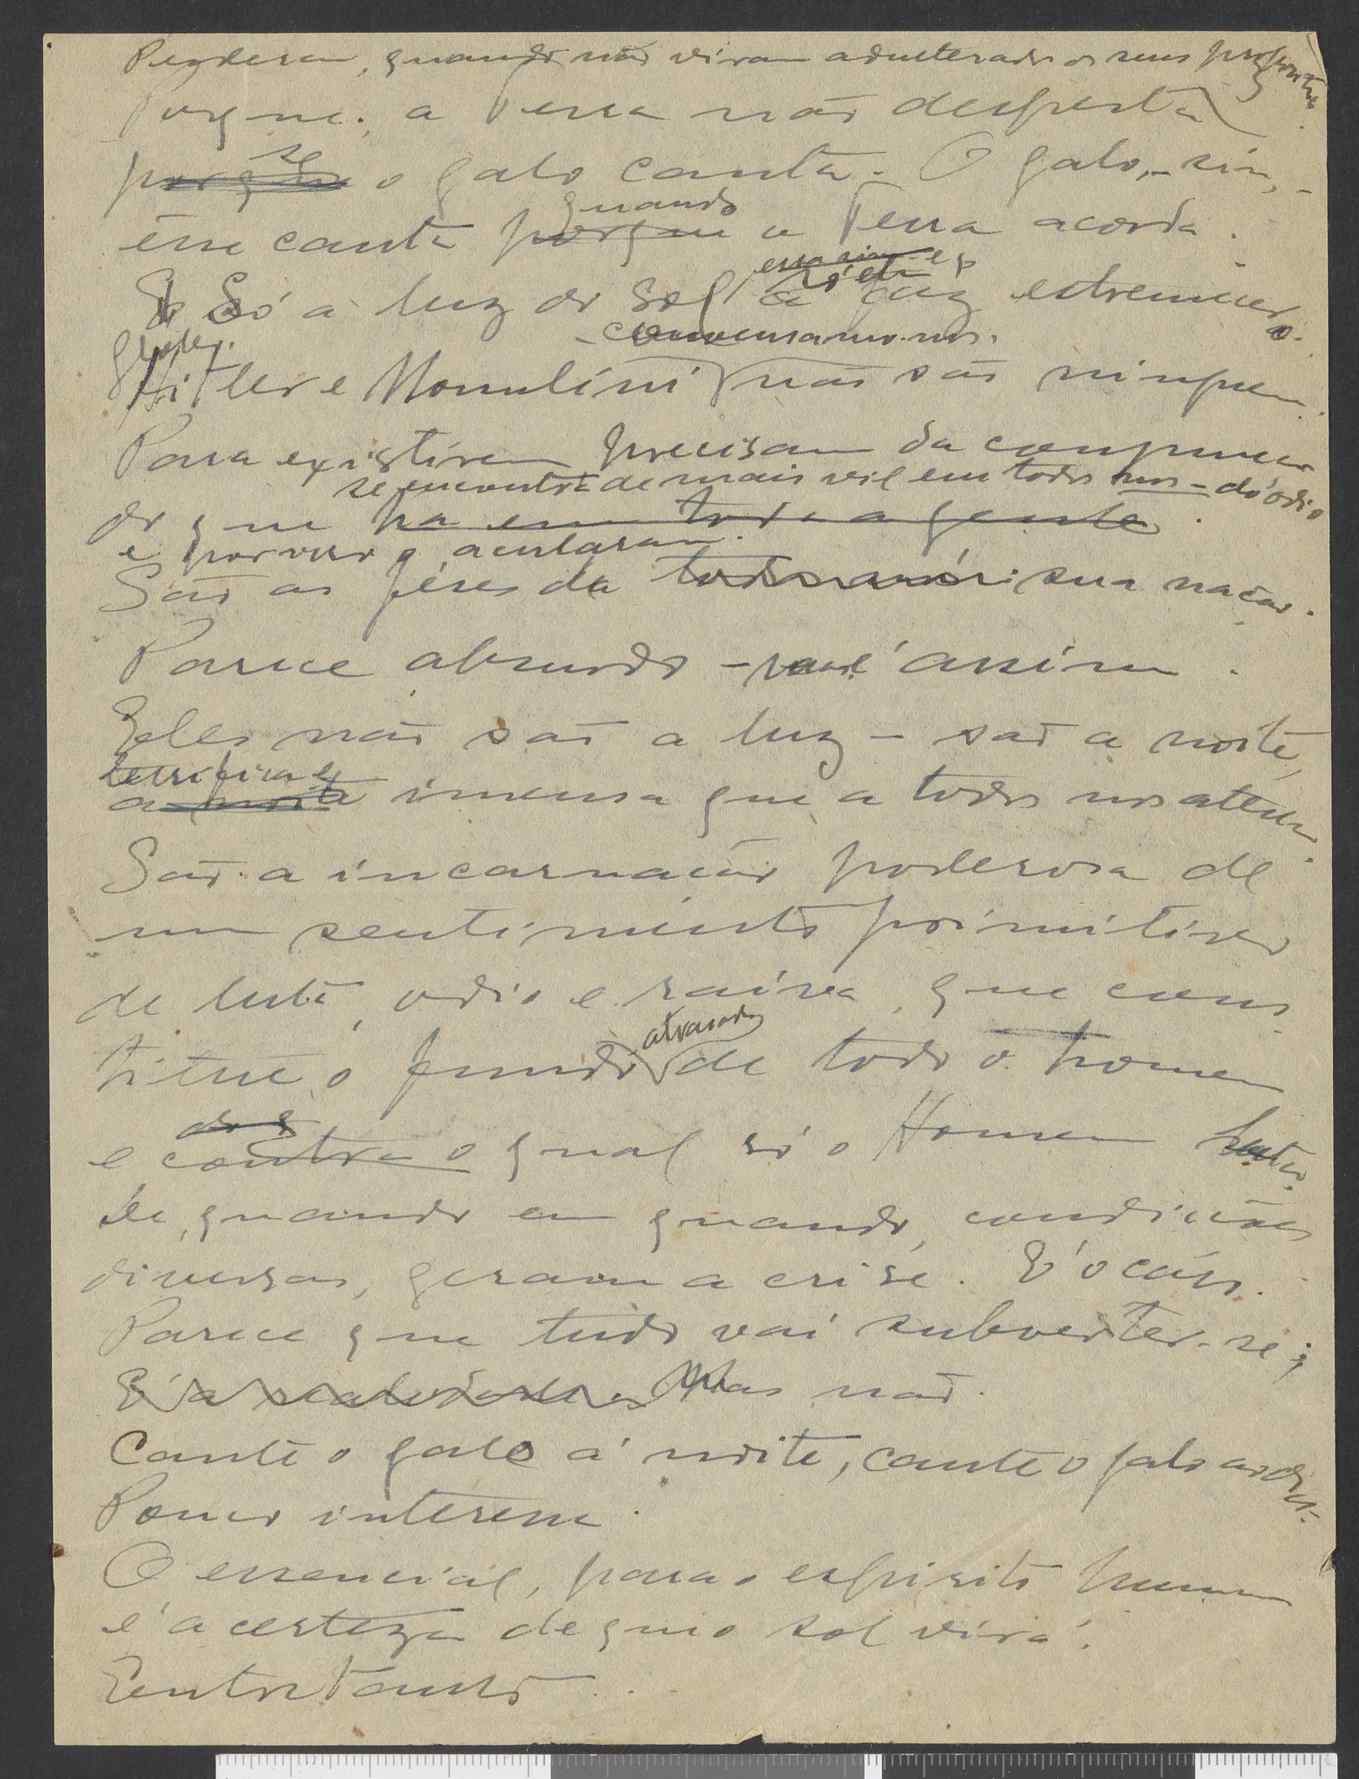 Perderam, quando não viram adulterados os seus propositos.
Porque, a Terra não desperta
se
porque o galo canta. O galo, - sim, -
quando
êsse canta porque a Terra acorda.
essa sim é q
só ela
Só a luz do Sol a faz estremecer.
- convençamo-nos.
Hitler e Mussulíni não são ninguem.
Para existirem precisam da
se encontra de mais vil em todos nós - do ódio
do que ha em toda a gente.
e por isso o aculasam.
São as fézes da sua nação.
Parece absurdo - mas é assim.
Eles não são a luz - são a noite,
terrifica e
a noite imensa que a todos nos aterra.
São a incarnação poderosa de
um sentimento primitivo
de luta, odio e raiva, que cons-
atrasado
titue o fundo de todo o homem
do q
e contra o qual só o Homem luta.
De quando em quando, condições
diversas, geram a crise. E' o cáos.
Parece que tudo vai subverter-se;
Mas não.
Cante o galo á noite, cante o galo ao dia.
Pouco interessa.
O essencial, para o espirito humano
é a certeza de que o sol virá.
Entretanto ...